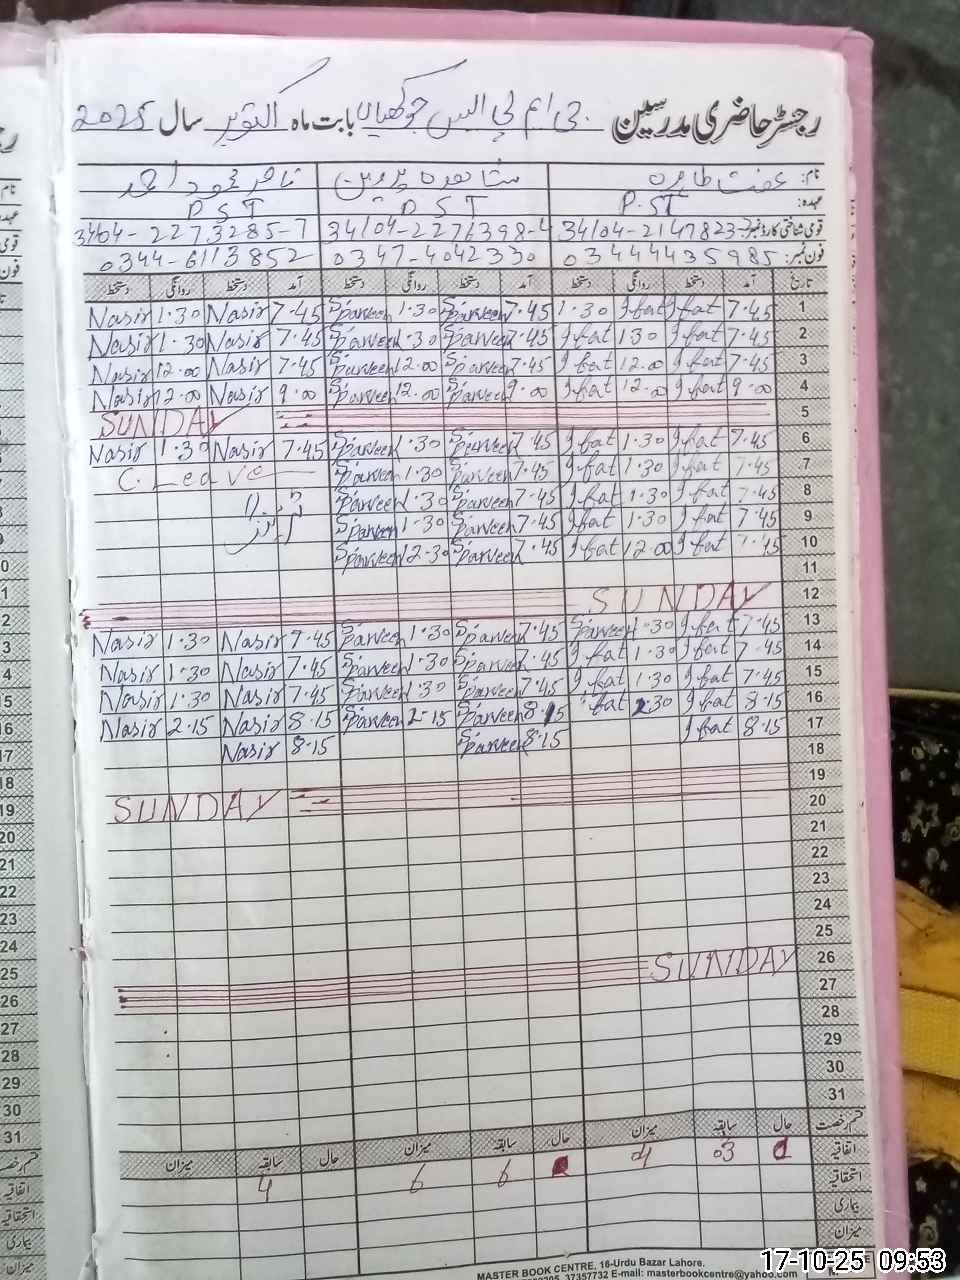 رجسٹر حاضری مدرسین جی ایم پی ایس جوکھیاں بابت ماہ اکتوبر سال 2025
نام: عفت طاہرہ شاہدہ پروین ناصر محمود احمد
عہدہ: P.ST PST PST
قومی شناختی کارڈ نمبر 34104-2147823-2 34104-2271398-4 3404-2273285-7
فون نمبر: 03444435985 0347-4042330 0344-6113852
تاریخ آمد دستخط روانگی دستخط آمد دستخط روانگی دستخط آمد دستخط روانگی دستخط
1 7.45 Ifat Ifat 1.30 7.45 S.parveen 1.30 S.parveen 7.45 Nasir 1.30 Nasir
2 7.45 Ifat 1.30 Ifat 7.45 S.parveen 1.30 S.parveen 7.45 Nasir 1.30 Nasir
3 7.45 Ifat 12.00 Ifat 7.45 S.parveen 12.00 S.parveen 7.45 Nasir 12.00 Nasir
4 9.00 Ifat 12.00 Ifat 9.00 S.parveen 12.00 S.parveen 9.00 Nasir 12.00 Nasir
5 SUNDAY
6 7.45 Ifat 1.30 Ifat 7.45 S.parveen 1.30 S.parveen 7.45 Nasir 1.30 Nasir
7 7.45 Ifat 1.30 Ifat 7.45 S.parveen 1.30 S.parveen C. Leave
8 7.45 Ifat 1.30 Ifat 7.45 S.parveen 1.30 S.parveen
9 7.45 Ifat 1.30 Ifat 7.45 S.parveen 1.30 S.parveen
10 7.45 Ifat 12.00 Ifat 7.45 S.parveen 12.30 S.parveen
11
12 SUNDAY
13 7.45 Ifat 1.30 S.parveen 7.45 S.parveen 1.30 S.parveen 7.45 Nasir 1.30 Nasir
14 7.45 Ifat 1.30 Ifat 7.45 S.parveen 1.30 S.parveen 7.45 Nasir 1.30 Nasir
15 7.45 Ifat 1.30 Ifat 7.45 S.parveen 1.30 S.parveen 7.45 Nasir 1.30 Nasir
16 8.15 Ifat 2.30 Ifat 8.15 S.parveen 2.15 S.parveen 8.15 Nasir 2.15 Nasir
17 8.15 Ifat 8.15 S.parveen 8.15 Nasir
18
19 SUNDAY
20
21
22
23
24
25
26 SUNDAY
27
28
29
30
31
قسم رخصت حال سابقہ میزان حال سابقہ میزان حال سابقہ میزان
اتفاقیہ 1 03 04 6 6 4
استحقاقیہ
بیماری
میزان
MASTER BOOK CENTRE, 16-Urdu Bazar Lahore.
37357732 E-mail: masterbookcentre@yahoo.com
17-10-25 09:53
13
14
15
16
17
18
19
20
21
22
23
24
25
26
27
28
29
30
31